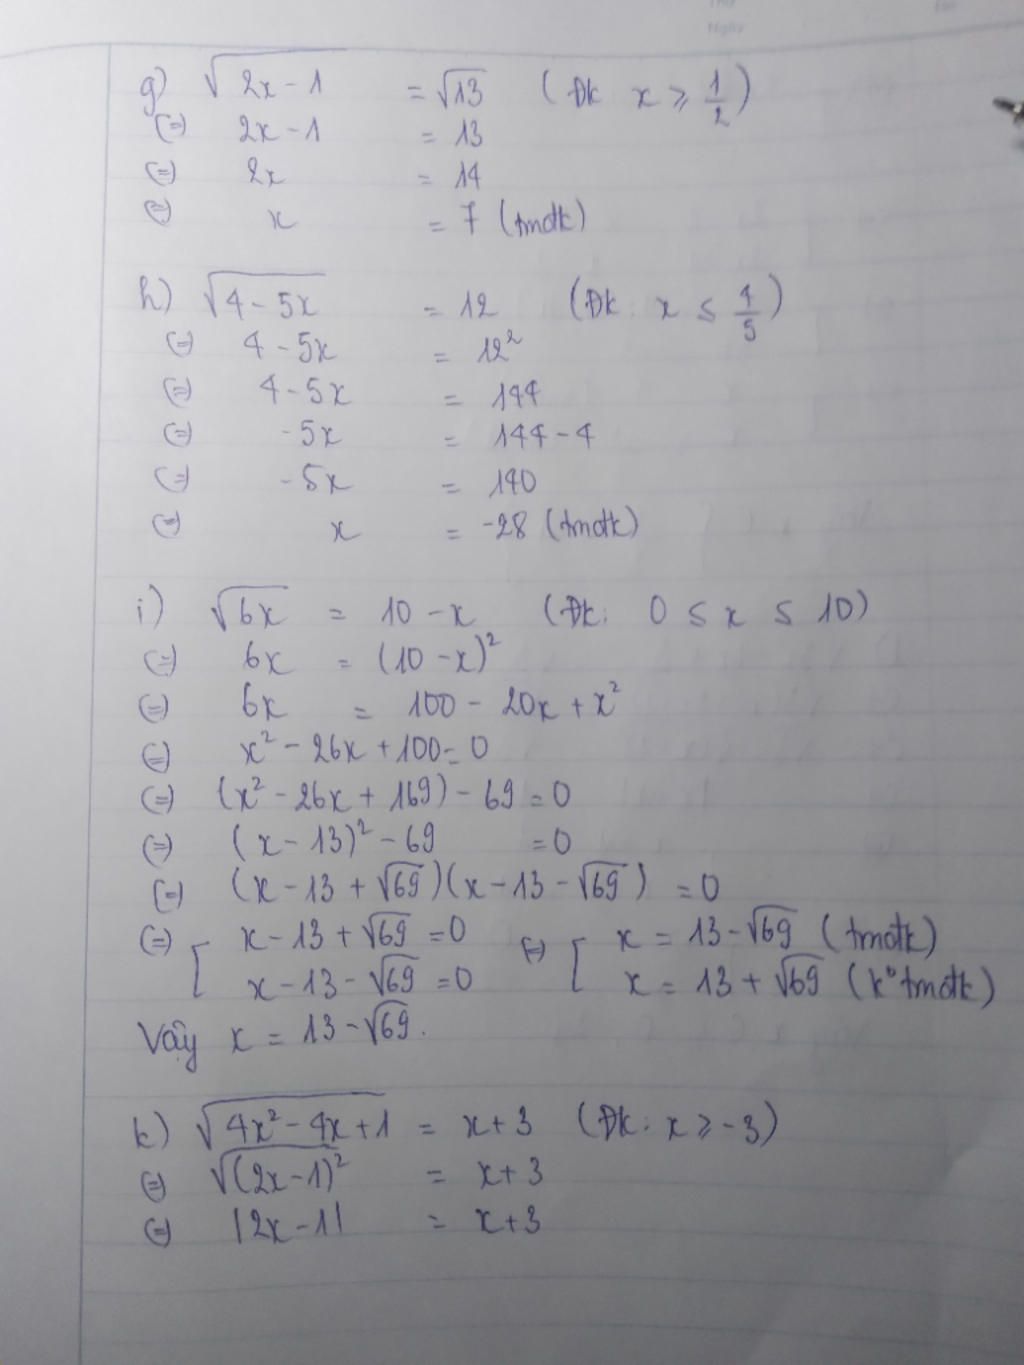 g) √(2x - 1) = √13 (Đk x ≥ 1/2)
(=) 2x - 1 = 13
(=) 2x = 14
(=) x = 7 (tmđk)
h) √(4 - 5x) = 12 (Đk: x ≤ 4/5)
(=) 4 - 5x = 12²
(=) 4 - 5x = 144
(=) -5x = 144 - 4
(=) -5x = 140
(=) x = -28 (tmđk)
i) √(6x) = 10 - x (Đk: 0 ≤ x ≤ 10)
(=) 6x = (10 - x)²
(=) 6x = 100 - 20x + x²
(=) x² - 26x + 100 = 0
(=) (x² - 26x + 169) - 69 = 0
(=) (x - 13)² - 69 = 0
(=) (x - 13 + √69)(x - 13 - √69) = 0
(=) [ x - 13 + √69 = 0 (=) [ x = 13 - √69 (tmđk)
x - 13 - √69 = 0 x = 13 + √69 (k° tmđk)
Vây x = 13 - √69.
k) √(4x² - 4x + 1) = x + 3 (Đk: x ≥ -3)
(=) √((2x - 1)²) = x + 3
(=) |2x - 1| = x + 3